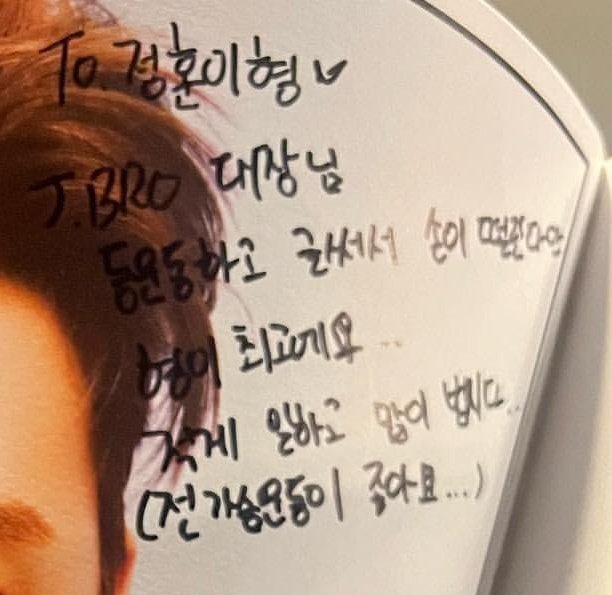 To. 정훈이형
J.BRO 대장님
등운동하고 글써서 손이 떨린다아
형이 최고에요..
적게 일하고 많이 법시다..
(전 가슴운동이 좋아요...)